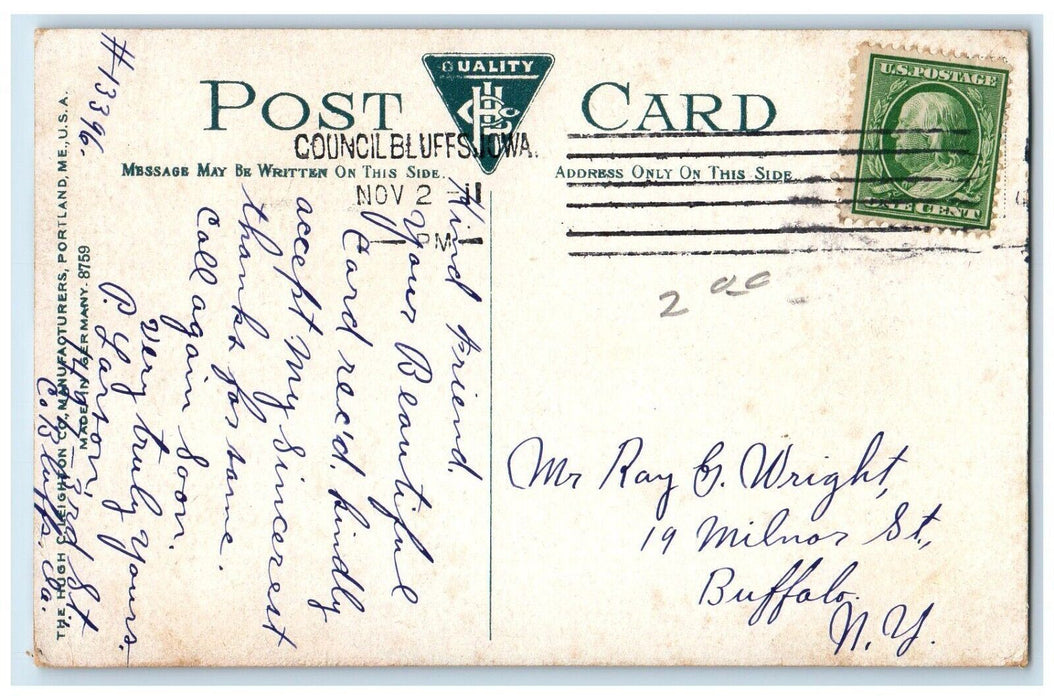 POST CARD
QUALITY
COUNCIL BLUFFS, IOWA.
NOV 2
PM
MESSAGE MAY BE WRITTEN ON THIS SIDE.
ADDRESS ONLY ON THIS SIDE
U.S. POSTAGE
ONE CENT
2 00
#13396.
Kind Friend.
Your Beautiful
Card rec'd. Kindly
accept My Sincerest
thanks for same.
Call again Soon.
Very truly Yours.
P. Larson,
St
C. Bluffs, Ia.
THE HUGH C. LEIGHTON CO., MANUFACTURERS, PORTLAND, ME., U.S.A.
MADE IN GERMANY. 8759
Mr Ray G. Wright,
19 Milnor St.,
Buffalo.
N.Y.